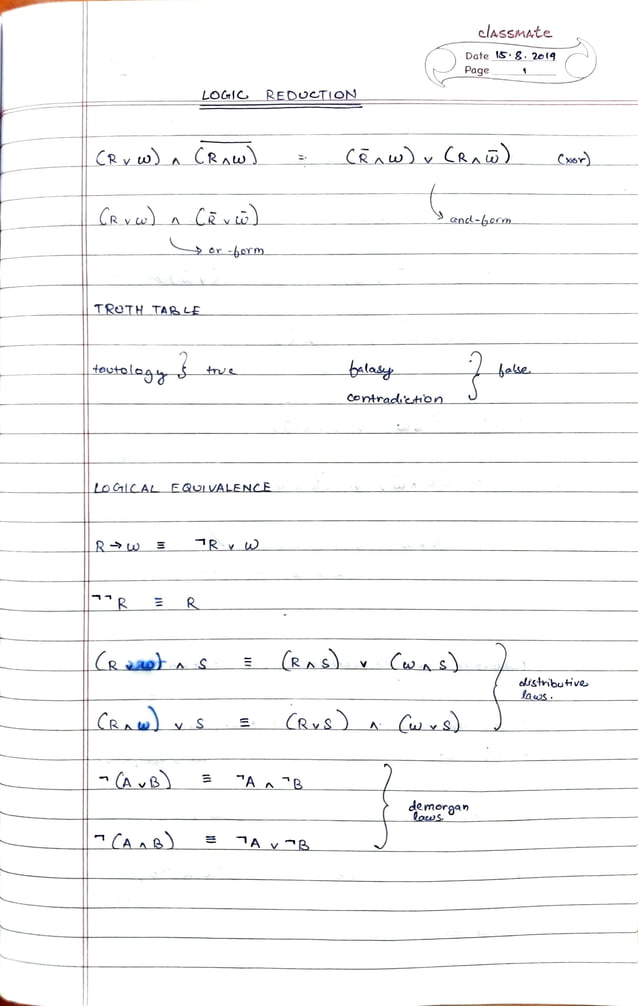 classmate
Date 15.8.2019
Page 1
LOGIC REDUCTION
(R ∨ w) ∧ (R̅ ̅∧̅ ̅w̅) = (R̄ ∧ w) ∨ (R ∧ w̄) (xor)
↳ and-form
(R ∨ w) ∧ (R̄ ∨ w̄)
↳ or-form
TRUTH TABLE
tautology } true falasy } false
contradiction
LOGICAL EQUIVALENCE
R → w ≡ ¬R ∨ w
¬¬R ≡ R
(R ∨ w) ∧ S ≡ (R ∧ S) ∨ (w ∧ S)
(R ∧ w) ∨ S ≡ (R ∨ S) ∧ (w ∨ S)
} distributive
laws.
¬(A ∨ B) ≡ ¬A ∧ ¬B
¬(A ∧ B) ≡ ¬A ∨ ¬B
} demorgan
laws.